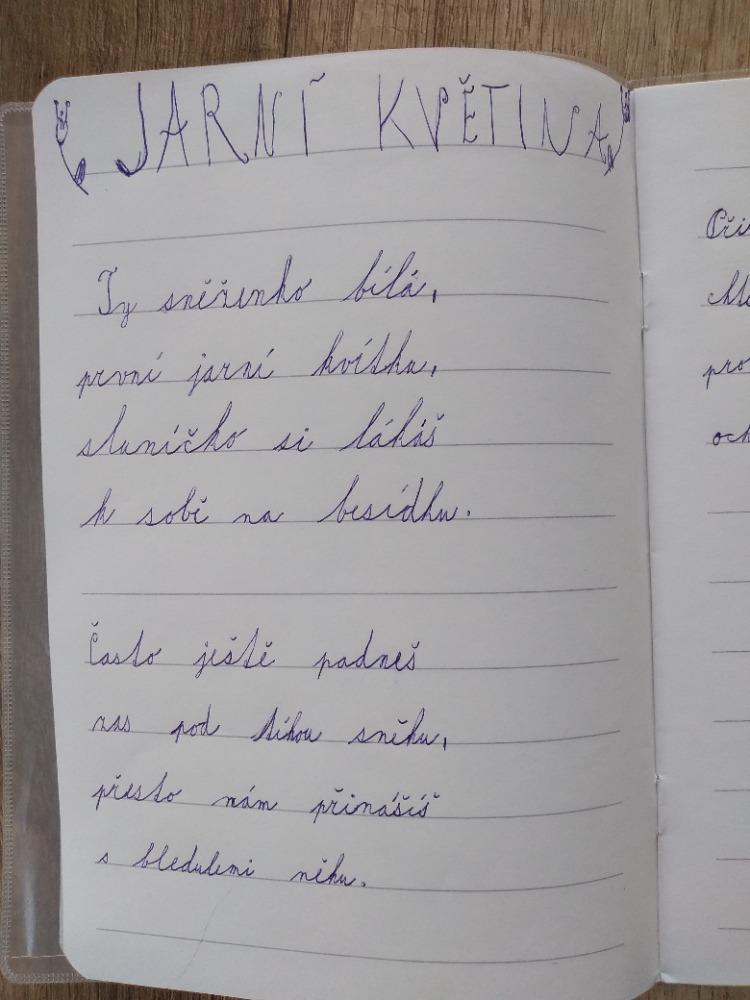 JARNÍ KVĚTINA
Ty sněženko bílá,
první jarní kvítku,
sluníčko si lákáš
k sobě na besídku.
Často ještě padneš
zas pod tíhou sněhu,
přesto nám přinášíš
s bledulemi něhu.
Při
chl
pro
och